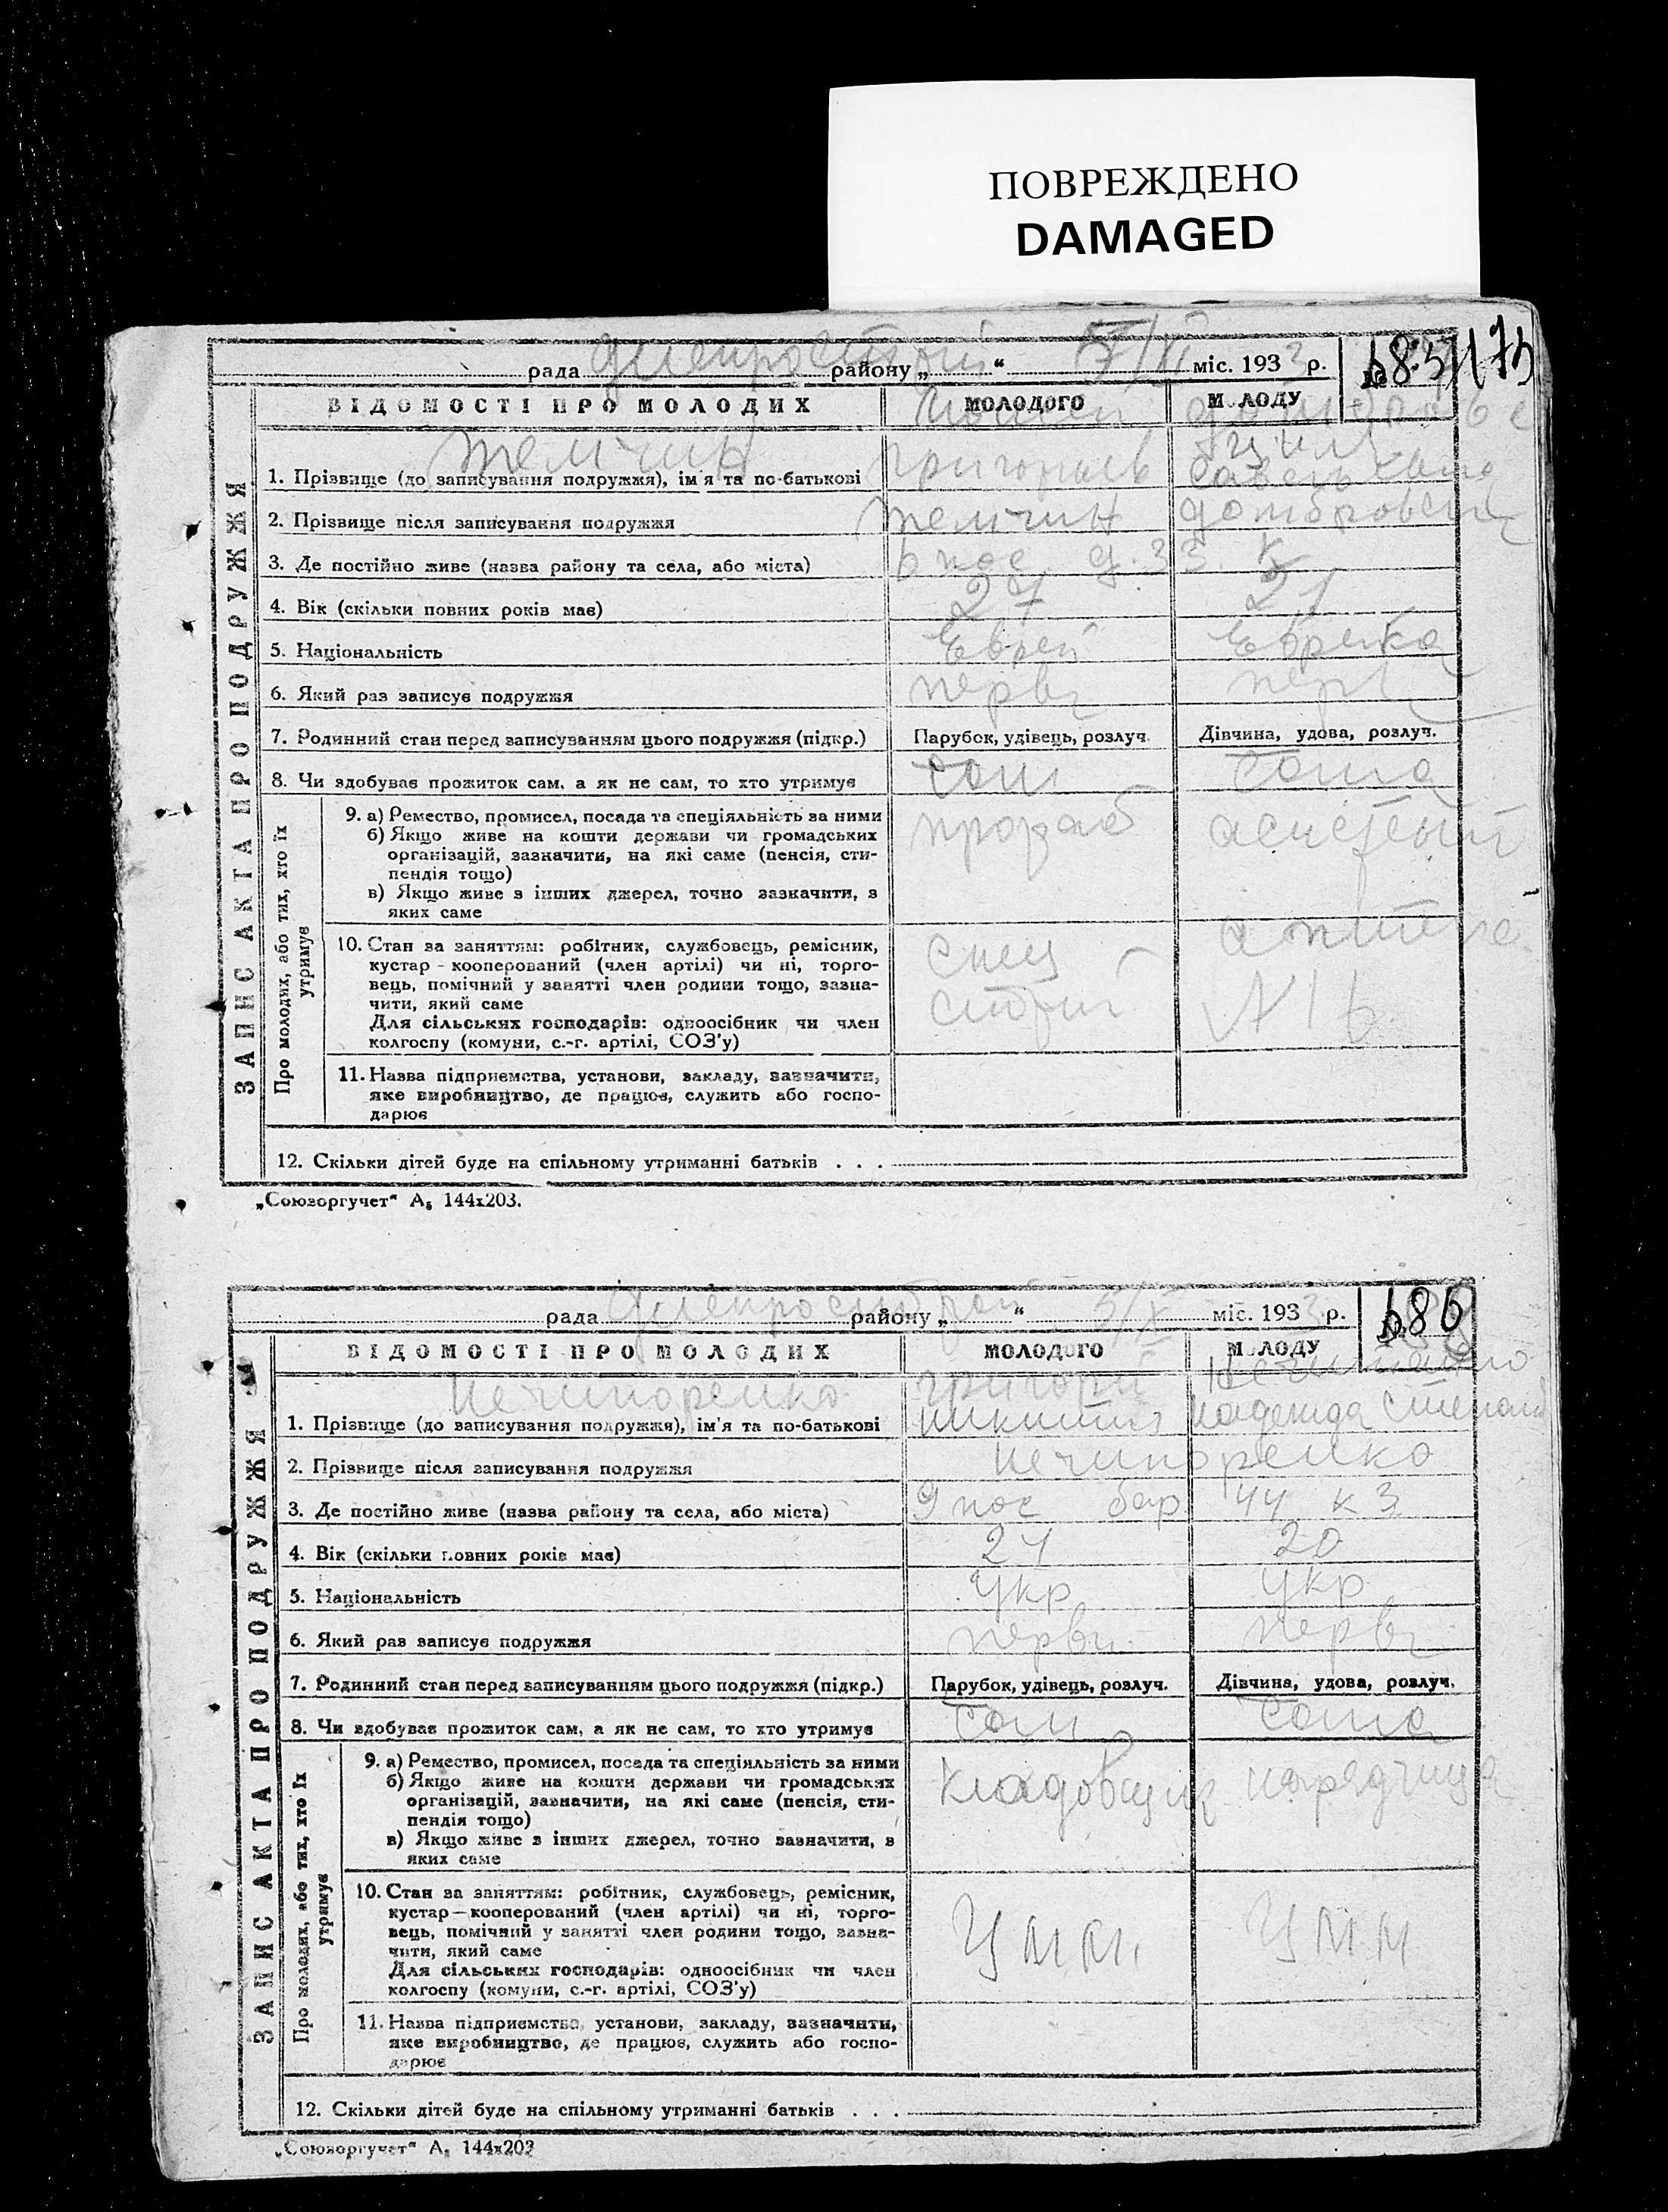 ПОВРЕЖДЕНО
DAMAGED
рада Днепрострой району „ “ міс. 1933 р. № 685 173
ЗАПИС АКТА ПРО ПОДРУЖЖЯ
ВІДОМОСТІ ПРО МОЛОДИХ МОЛОДОГО МОЛОДУ
Темчин
1. Прізвище (до записування подружжя), ім'я та по-батькові Григорьев
2. Прізвище після записування подружжя Темчин Домбровск
3. Де постійно живе (назва району та села, або міста) 6 пос д. 33
4. Вік (скільки повних років має) 27 21
5. Національність Еврей Еврейка
6. Який раз записує подружжя перв перв
7. Родинний стан перед записуванням цього подружжя (підкр.) Парубок, удівець, розлуч. Дівчина, удова, розлуч.
8. Чи здобуває прожиток сам, а як не сам, то хто утримує Сам Сама
Про молодих, або тих, хто їх утримує
9. а) Ремество, промисел, посада та спеціяльність за ними прораб асистент
б) Якщо живе на кошти держави чи громадських
організацій, зазначити, на які саме (пенсія, сти-
пендія тощо)
в) Якщо живе з інших джерел, точно зазначити, з
яких саме
10. Стан за заняттям: робітник, службовець, ремісник,
кустар - кооперований (член артілі) чи ні, торго-
вець, помічний у занятті член родини тощо, зазна-
чити, який саме
Для сільських господарів: одноосібник чи член
колгоспу (комуни, с.-г. артілі, СОЗ'у)
спец
строй
11. Назва підприємства, установи, закладу, зазначити,
яке виробництво, де працює, служить або госпо-
дарює
12. Скільки дітей буде на спільному утриманні батьків . . .
„Союзоргучет“ А₅ 144х203.
рада Днепрострой району „ “ 5/X міс. 193 р. № 686
ЗАПИС АКТА ПРО ПОДРУЖЖЯ
ВІДОМОСТІ ПРО МОЛОДИХ МОЛОДОГО МОЛОДУ
Нечипоренко Григори
1. Прізвище (до записування подружжя), ім'я та по-батькові Никитич Надежда Степан
2. Прізвище після записування подружжя Нечипоренко
3. Де постійно живе (назва району та села, або міста) 9 пос бар 44 к 3
4. Вік (скільки повних років має) 24 20
5. Національність Укр Укр
6. Який раз записує подружжя перви перв
7. Родинний стан перед записуванням цього подружжя (підкр.) Парубок, удівець, розлуч. Дівчина, удова, розлуч.
8. Чи здобуває прожиток сам, а як не сам, то хто утримує Сам Сама
Про молодих, або тих, хто їх утримує
9. а) Ремество, промисел, посада та спеціяльність за ними Кладовщик нарядчица
б) Якщо живе на кошти держави чи громадських
організацій, зазначити, на які саме (пенсія, сти-
пендія тощо)
в) Якщо живе з інших джерел, точно зазначити, з
яких саме
10. Стан за заняттям: робітник, службовець, ремісник,
кустар—кооперований (член артілі) чи ні, торго-
вець, помічний у занятті член родини тощо, зазна-
чити, який саме
Для сільських господарів: одноосібник чи член
колгоспу (комуни, с.-г. артілі, СОЗ'у)
11. Назва підприємства, установи, закладу, зазначити,
яке виробництво, де працює, служить або госпо-
дарює
12. Скільки дітей буде на спільному утриманні батьків . . .
„Союзоргучет“ А₅ 144х203